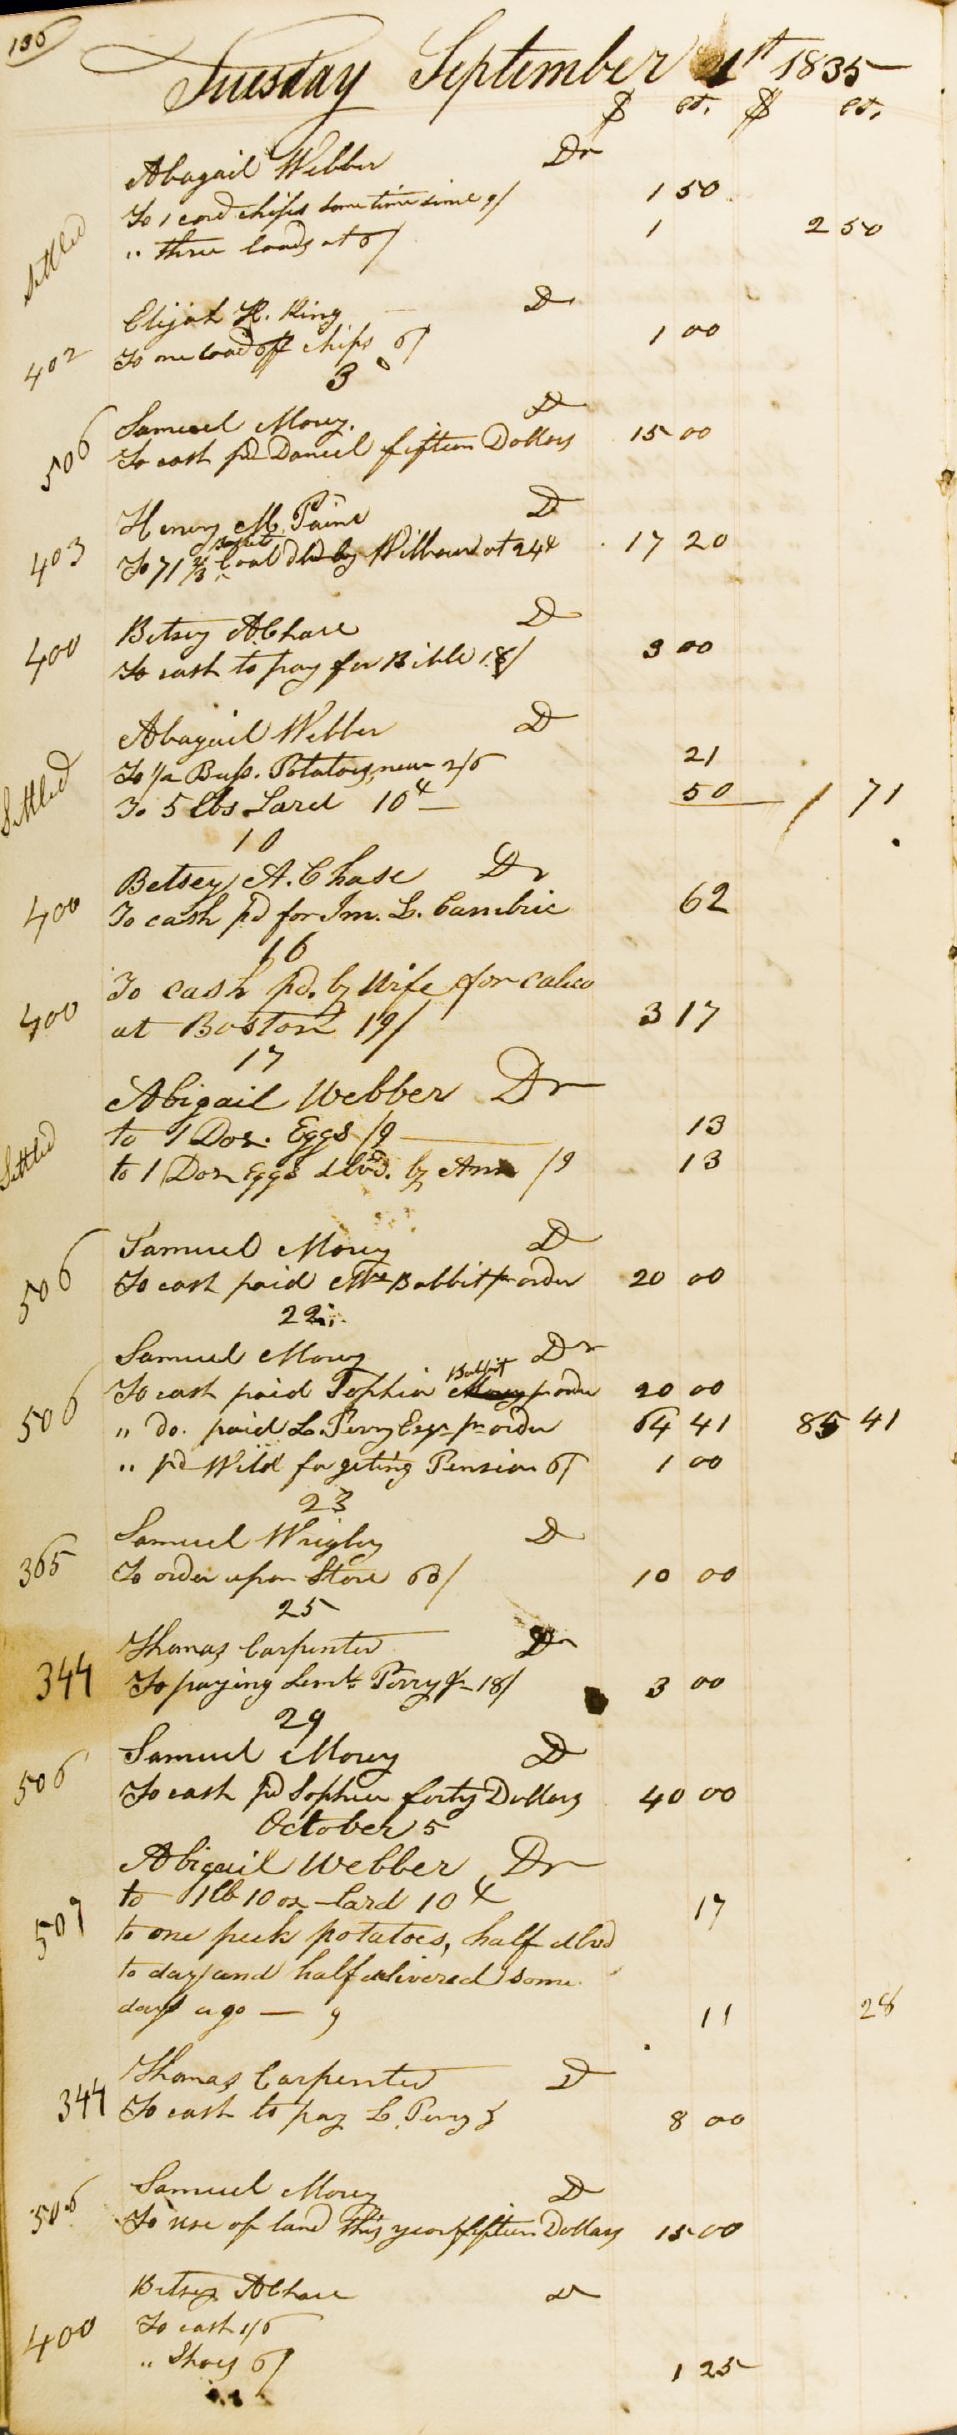 136
Tuesday September 1st 1835
$ ct. $ ct.
Abagail Webber Dr
To 1 cord chips some time since 9/ 1 50
Settled " three loads at 6/ 1 2 50
Elijah H. King D
402 To one load off chips 6/ 1 00
3
Samuel Mowry. D
506 To cash pd Daniel fifteen Dollars 15 00
Henry M. Paine D
403 To 71 2/3 Basket Coal dld by Wilbour at 24¢ 17 20
Betsey A Chase D
400 To cash to pay for Bible 18/ 3 00
Abagail Webber D
To 1/2 Bush. Potatoes, new 2/6 21
Settled To 5 lbs Lard 10¢ 50 1 71
10
Betsey A. Chase Dr
400 To cash pd for Cambric 62
16
To cash pd. by Wife for calico
400 at Boston 19/ 3 17
17
Abigail Webber Dr
to 1 Doz. Eggs /9 13
Settled to 1 Doz Eggs dlvd. by Ann /9 13
Samuel Mowry D
506 To cash paid Mr Babbit pr order 20 00
22
Samuel Mowry Dr
To cash paid Sophia Babbit Mowry pr order 20 00
506 " do. paid L. Perry Esqr pr order 64 41 85 41
" pd Wild for geting Pension 6/ 1 00
23
Samuel Wrigley D
365 To order upon Store 60/ 10 00
25
Thomas Carpenter Dr
344 To paying Perry 18/ 3 00
29
Samuel Mowry D
506 To cash pd Sophia forty Dollars 40 00
October 5
Abigail Webber Dr
to 1 lb 10 oz Lard 10¢ 17
507 to one peck potatoes, half dlvd
to day and half delivered some
days ago — 9 11 28
Thomas Carpenter D
344 To cash to pay L. Perry 8 00
Samuel Mowry D
506 To use of land this year fifteen Dollars 15 00
Betsey A Chase D
To cash 1/6
400 " Shoes 6/ 1 25